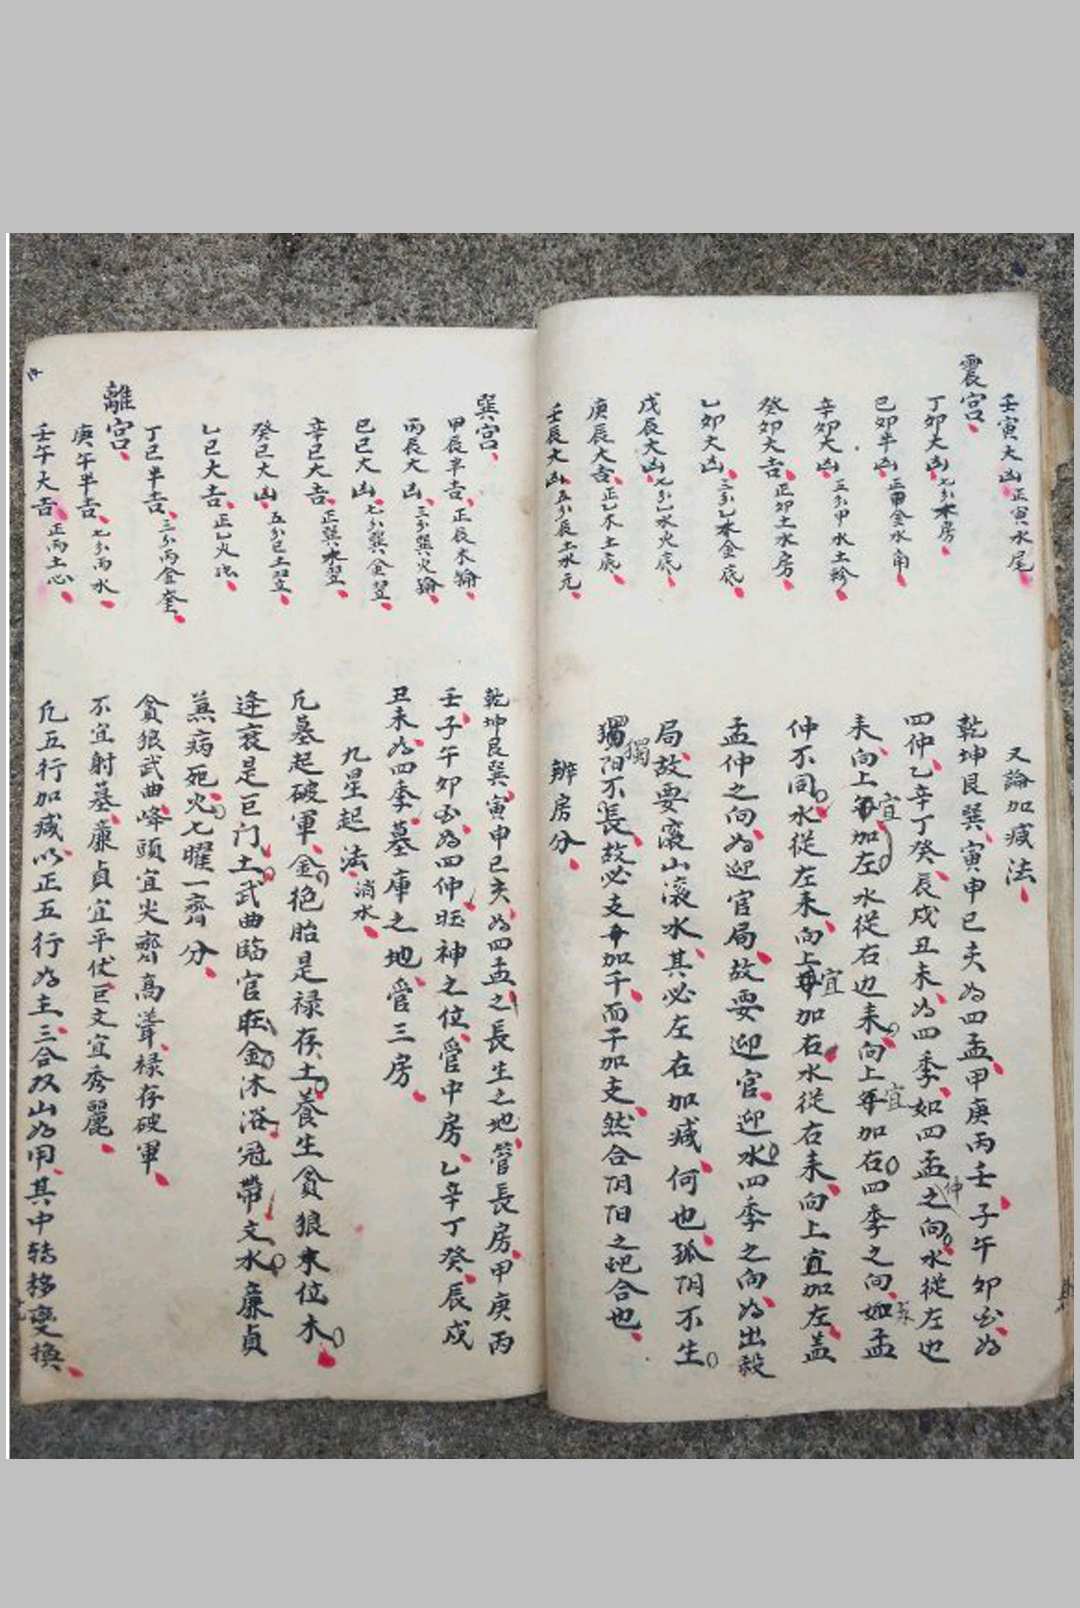 壬寅大凶 正寅水尾
震宫
丁卯大凶 七分木房
己卯半凶 正甲金水角
辛卯大凶 三分甲水土軫
癸卯大吉 正卯土水房
乙卯大凶 三分乙木金底
戊辰大凶 七分乙水火底
庚辰大吉 正乙木土底
壬辰大凶 五分辰土水元
又論加减法
乾坤艮巽寅申巳亥为四孟甲庚丙壬子午卯酉为
四仲乙辛丁癸辰戌丑未为四季如四孟之向水從左边
耒向上宜加左水從右边耒向上宜加右四季之向如孟
仲不同水從左耒向上宜加右水從右耒向上宜加左盖
孟仲之向为迎官局故要迎官迎水四季之向为出殺
局故要滚山滚水其必左右加减何也孤阴不生
獨阳不長故必支加干而干加支然合阴阳之配合也
辦房分
巽宫
甲辰半吉 正辰木
丙辰大凶 三分巽火
己巳大凶 七分巽金翌
辛巳大吉 正巽水翌
癸巳大凶 五分巳土翌
乙巳大吉 正乙火
丁巳半吉 三分丙金奎
離宫
庚午半吉 七分丙水
壬午大吉 正丙土心
乾坤艮巽寅申巳亥为四孟之長生之地管長房甲庚丙
壬子午卯酉为四仲旺神之位管中房乙辛丁癸辰戌
丑未为四季墓庫之地管三房
九星起法 消水
凡墓起破軍金绝胎是禄存土養生貪狼木位木
逢衰是巨门土武曲臨官旺金沐浴冠帶文水廉貞
兼病死火七曜一齊分
貪狼武曲峰頭宜尖齊高聳禄存破軍
不宜射墓廉貞宜平伏巨文宜秀麗
凡五行加减以正五行为主三合双山为用其中转移变换